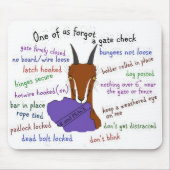 One of us forgot
a gate check
gate firmly closed
no board/wire loose
latch hooked
hinges secure
hotwire hooked(on)
bar in place
rope tied
padlock locked
dead bolt locked
bungees not loose
boulder rolled in place
dog posted
nothing over 6" near
the gate or fence
keep a weathered eye
on me
don't get distracted
don't blink